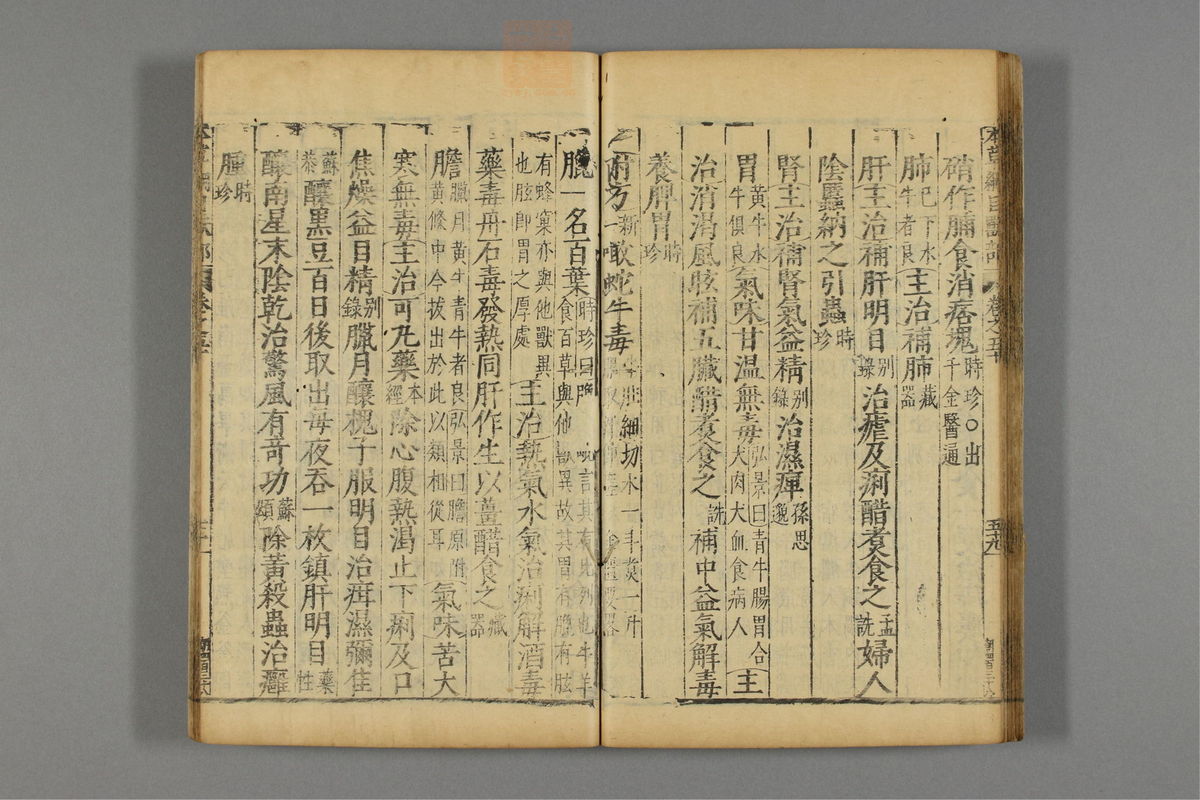 硝作脯食消痞塊時珍○出千金醫通
肺巳下水牛者良主治補肺藏器
肝主治補肝明目別錄治瘧及痢醋煮食之孟詵婦人
陰䘌納之引蟲時珍
腎主治補腎氣益精別錄治濕痺孫思邈
胃黃牛水牛俱良氣味甘温無毒弘景曰青牛腸胃合犬肉犬血食病人主
治消渴風眩補五臟醋煮食之詵補中益氣解毒
養脾胃時珍
附方新一噉蛇牛毒牛肚細切水一斗煮一升
膍一名百葉時珍曰食百草與他獸異故其胃有膍有胘
有蜂窠亦與他獸異也胘即胃之厚處主治熱氣水氣治痢解酒毒
藥毒丹石毒發熱同肝作生以薑醋食之藏器
膽臘月黃牛青牛者良弘景曰膽原附黃條中今拔出於此以類相從耳氣味苦大
寒無毒主治可丸藥本經除心腹熱渴止下痢及口
焦燥益目精別錄臘月釀槐子服明目治疳濕彌佳
蘇恭釀黑豆百日後取出每夜吞一枚鎮肝明目藥性
釀南星末陰乾治驚風有奇功蘇頌除黃殺蟲治癰
腫時珍